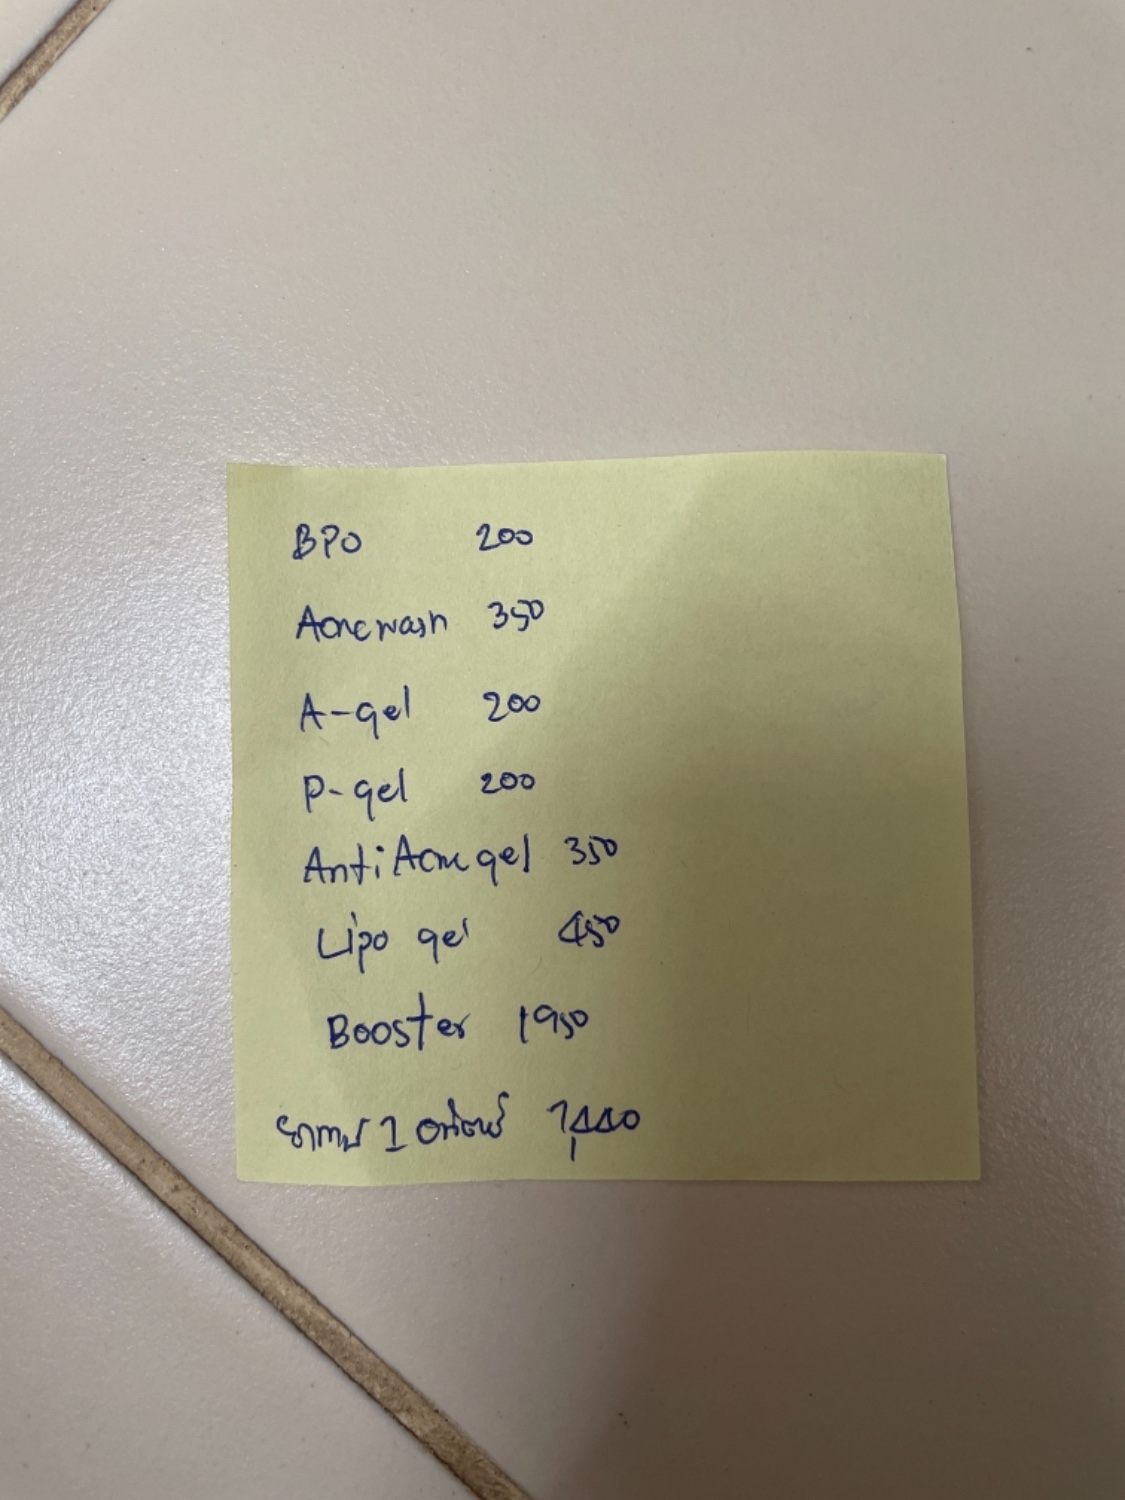 BPO 200
Acne wash 350
A-gel 200
P-gel 200
Anti Acne gel 350
Lipo gel 450
Booster 1950
1 1,440